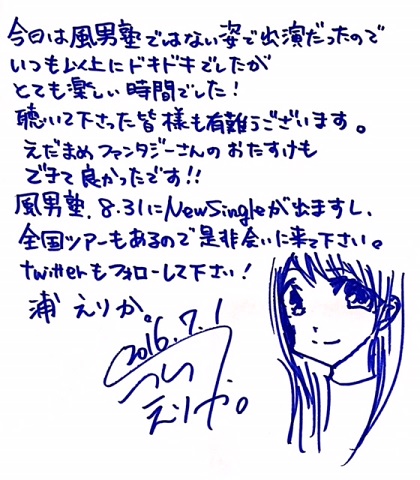 今日は風男塾ではない姿で出演だったので
いつも以上にドキドキでしたが
とても楽しい時間でした!
聴いて下さった皆様も有難うございます。
えだまめファンタジーさんのおたすけも
できて良かったです!!
風男塾、8.31にNewSingleが出ますし、
全国ツアーもあるので是非会いに来て下さい。
twitterもフォローして下さい!
浦 えりか。
2016.7.1
うら
えりか。